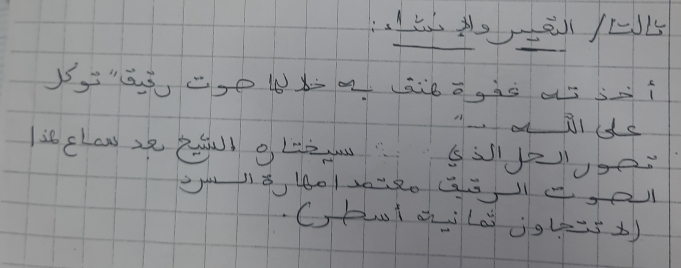 ثالثا/ التعبير والإنشاء:
أخذته غفوة هتف به خلالها صوت رقيق "توكل
على الله .."
تصور الحل الذي سيختاره الشيخ بعد سماع هذا
الصوت الرقيق معتمدا مهارة السرد
(لا تتجاوز ثمانية أسطر).